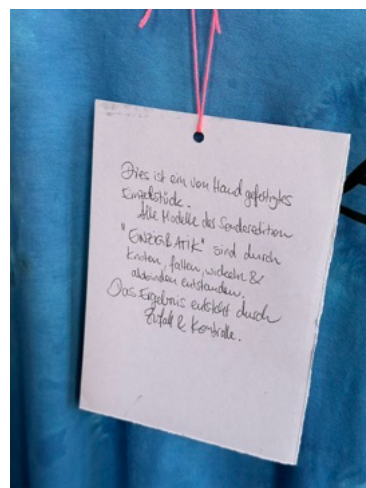 Dies ist ein von Hand gefertigtes
Einzelstück.
Alle Modelle der Sonderedition
"EINZIGBATIK" sind durch
knoten, falten, wickeln &
abbinden entstanden.
Das Ergebnis entsteht durch
Zufall & Kontrolle.